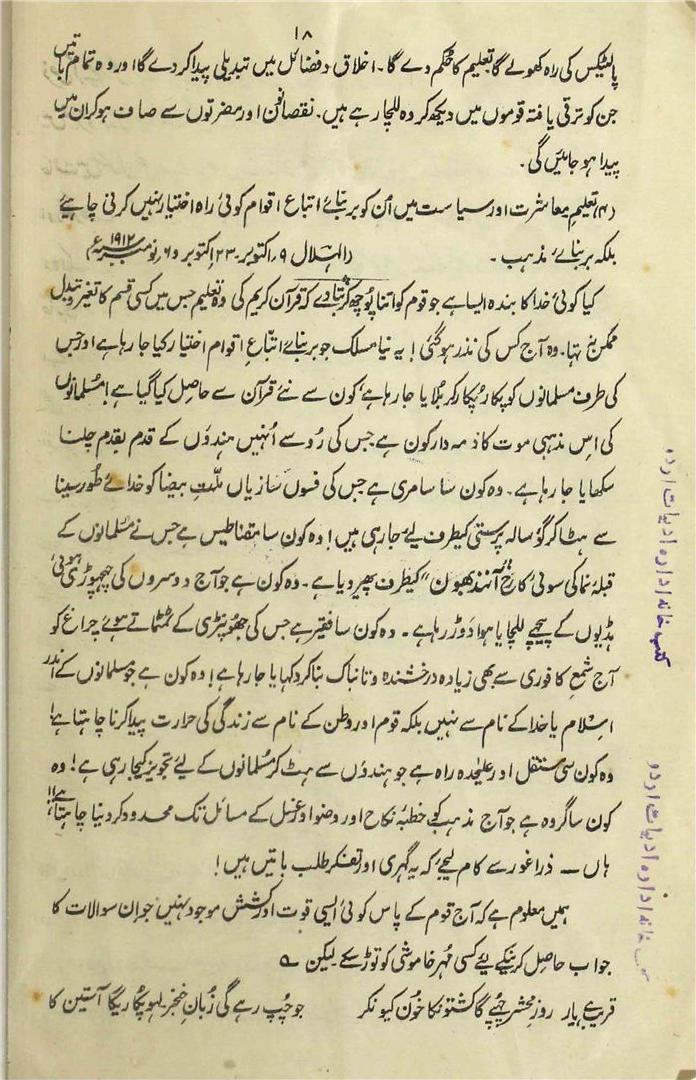 ۱۸
پالٹیکس کی راہ کھولے گا تعلیم کا حکم دے گا۔ اخلاق و فضائل میں تبدیلی پیدا کر دے گا اور وہ تمام باتیں
جن کو ترقی یافتہ قوموں میں دیکھ کر وہ للچا رہے ہیں۔ نقصانوں اور مضرتوں سے صاف ہو کر ان میں
پیدا ہو جائیں گی۔
(۴) تعلیم، معاشرت اور سیاست میں اُن کو بربنائے اتباع اقوام کوئی راہ اختیار نہیں کرنی چاہیئے
بلکہ بربنائے مذہب۔ (الہلال ۹؍اکتوبر۔ ۲۳؍اکتوبر و ۶؍نومبر ۱۹۱۲ء)
کیا کوئی خدا کا بندہ ایسا ہے جو قوم کو اتنا پوچھ کر بتا دے کہ قرآن کریم کی وہ تعلیم جس میں کسی قسم کا تغیر و تبدل
ممکن نہ تھا۔ وہ آج کس کی نذر ہو گئی! یہ نیا مسلک جو بربنائے اتباعِ اقوام اختیار کیا جا رہا ہے اور جس
کی طرف مسلمانوں کو پکار پکار کر بُلایا جا رہا ہے کون سے نئے قرآن سے حاصل کیا گیا ہے! مسلمانوں
کی اس مذہبی موت کا ذمہ دار کون ہے جس کی رُو سے اُنہیں ہندؤں کے قدم بقدم چلنا
سکھایا جا رہا ہے۔ وہ کون سا سامری ہے جس کی فسوں سازیاں ملّتِ بیضا کو خدائے طُورِ سینا
سے ہٹا کر گؤسالہ پرستی کیطرف لیے جا رہی ہیں! وہ کون سا مقناطیس ہے جس نے مسلمانوں کے
قبلہ نما کی سوئی کا رُخ "آنند بھون" کیطرف پھیر دیا ہے۔ وہ کون ہے جو آج دوسروں کی چچوڑی ہوئی
ہڈیوں کے پیچھے للچایا ہوا دوڑ رہا ہے۔ وہ کون سا فقیر ہے جس کی جھونپڑی کے ٹمٹماتے ہوئے چراغ کو
آج شمع کافوری سے بھی زیادہ درخشندہ و تابناک بنا کر دکھایا جا رہا ہے! وہ کون ہے جو مسلمانوں کے اندر
اسلام یا خدا کے نام سے نہیں بلکہ قوم اور وطن کے نام سے زندگی کی حرارت پیدا کرنا چاہتا ہے!
وہ کون سی مستقل اور علیٰحدہ راہ ہے جو ہندؤں سے ہٹ کر مسلمانوں کے لیے تجویز کیجا رہی ہے! وہ
کون سا گروہ ہے جو آج مذہب کو خطبۂ نکاح اور وضو اور غسل کے مسائل تک محدود کر دینا چاہتا ہے!!
ہاں — ذرا غور سے کام لیجئے کہ یہ گہری اور تفکر طلب باتیں ہیں!
ہمیں معلوم ہے کہ آج قوم کے پاس کوئی ایسی قوت اور کشش موجود نہیں جو ان سوالات کا
جواب حاصل کرنیکے لیے کسی مُہرِ خاموشی کو توڑ سکے لیکن ؎
قریب ہے یار روزِ محشر چھپے گا کشتوں کا خُون کیونکر جو چُپ رہے گی زُبانِ خنجر لہو پکاریگا آستین کا
کتب خانہ ادارہ ادبیات اردو
کتب خانہ ادارہ ادبیات اردو